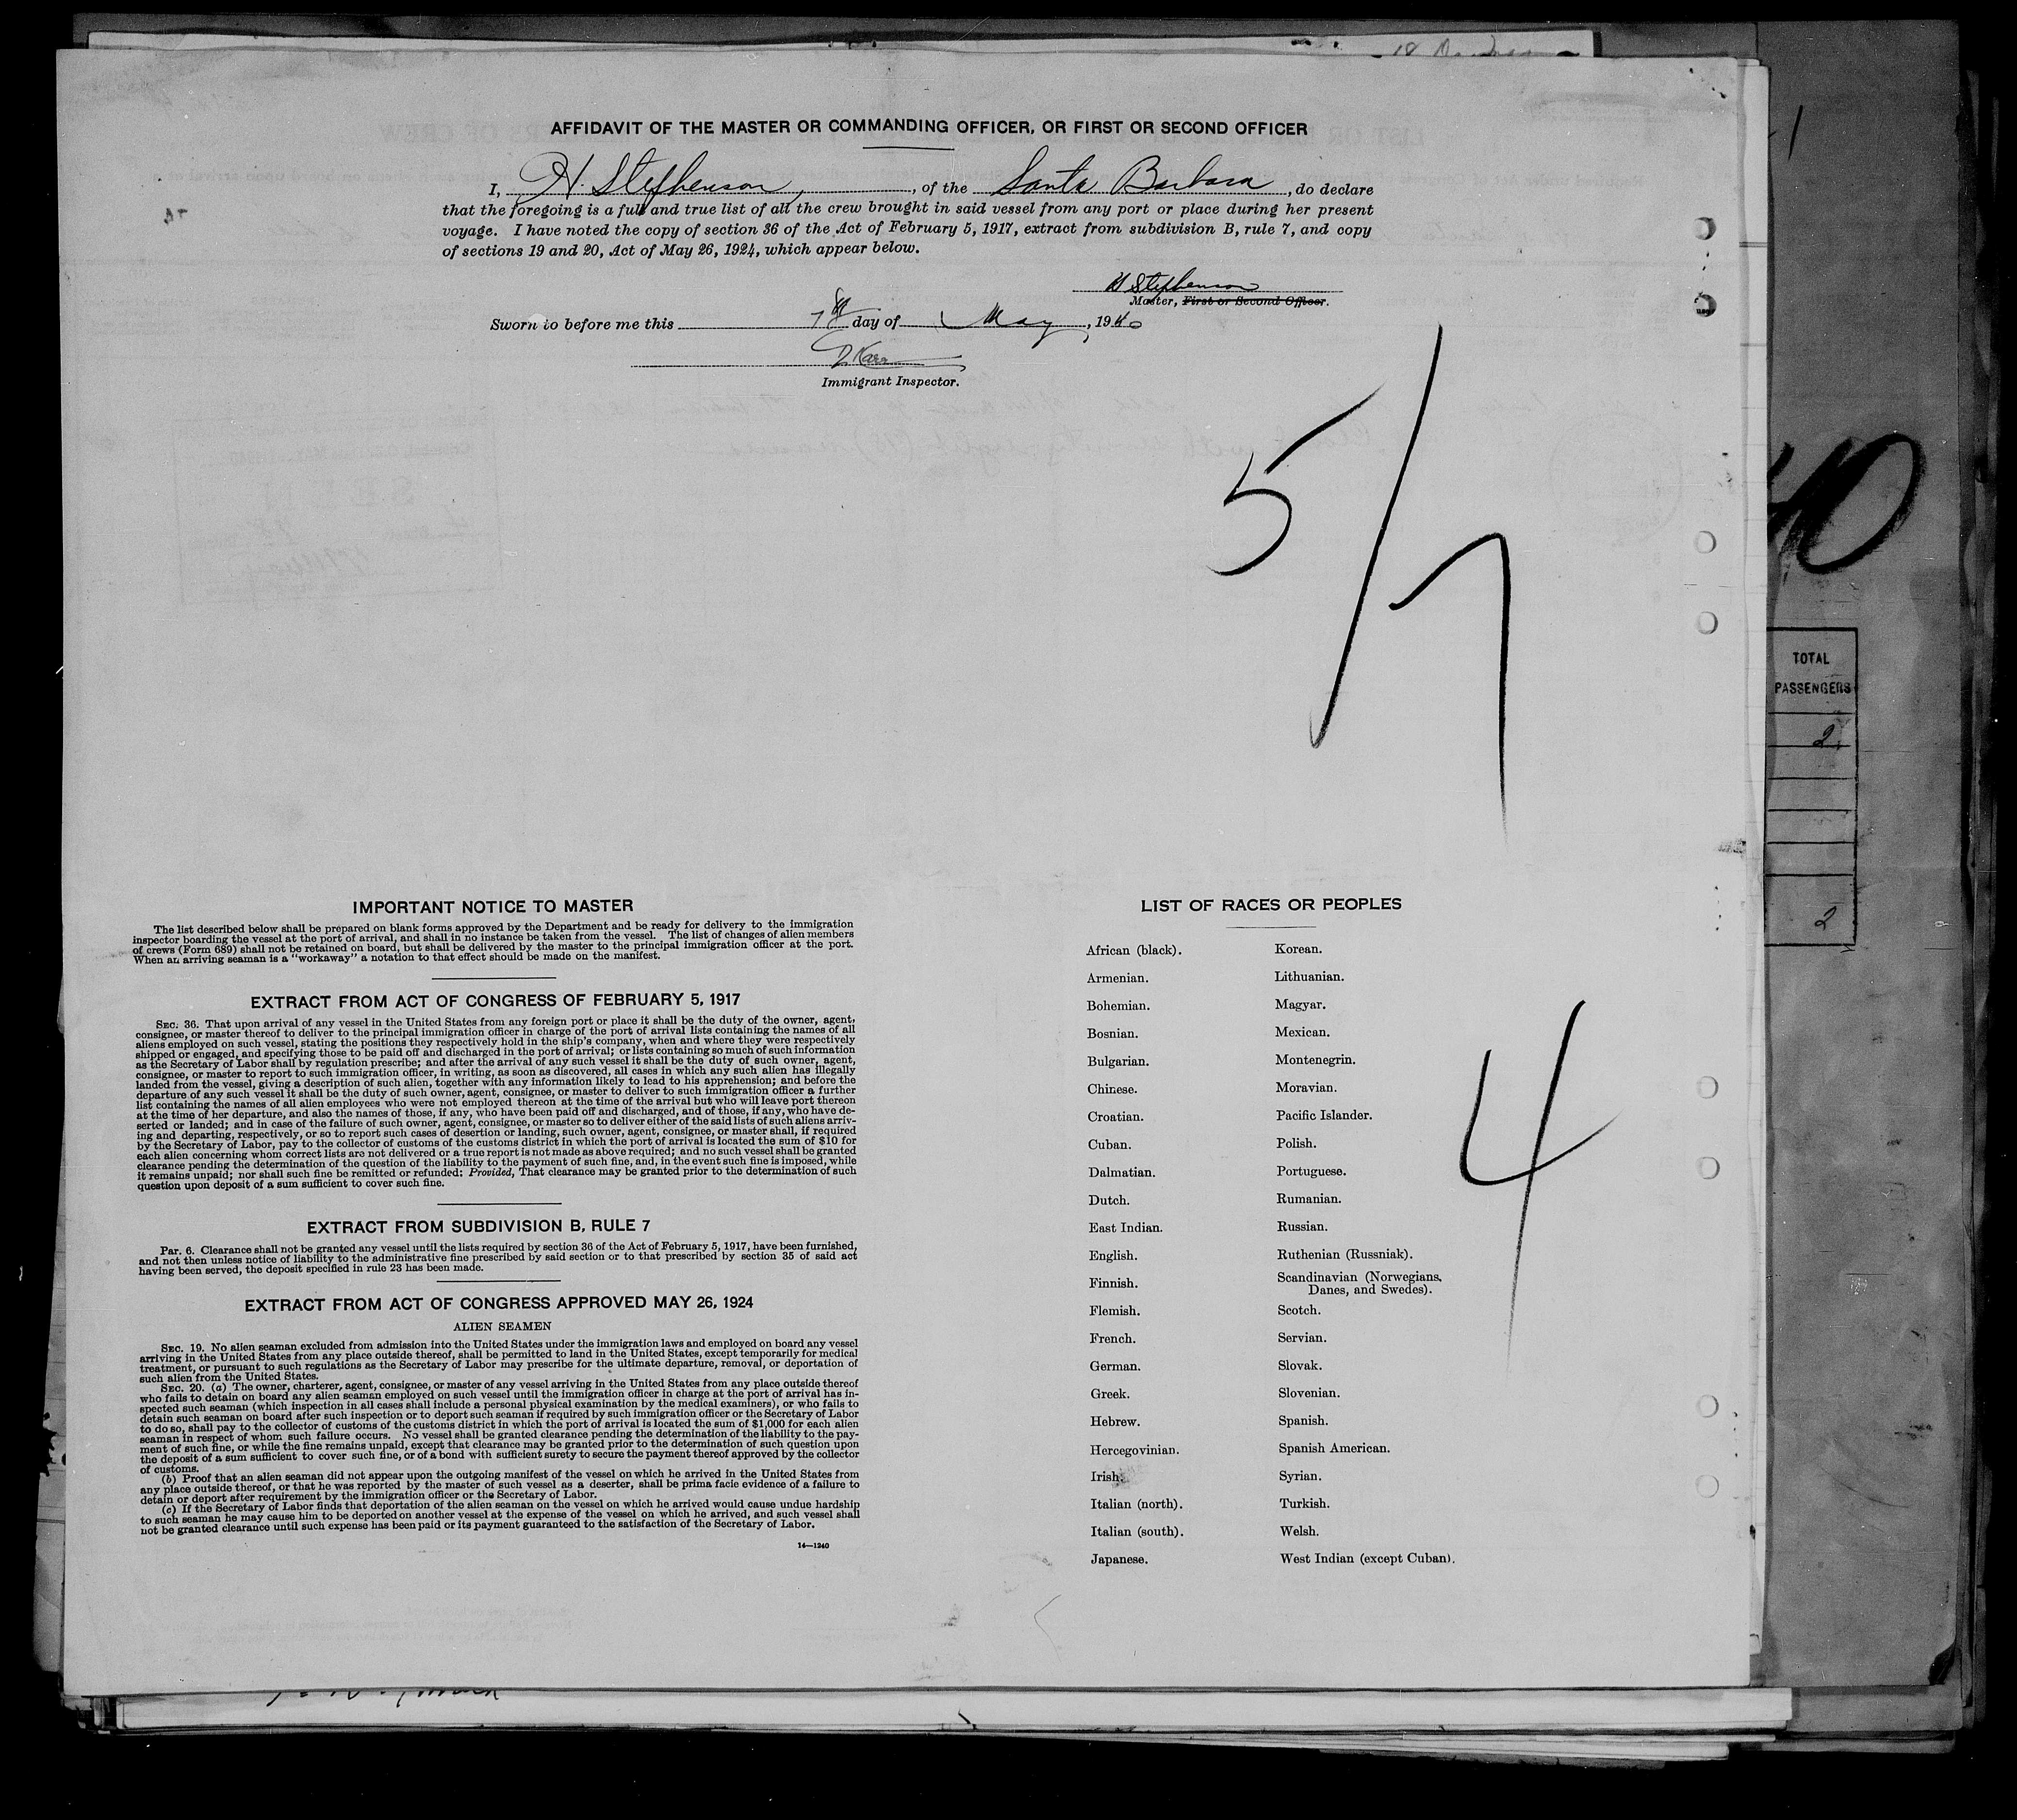 AFFIDAVIT OF THE MASTER OR COMMANDING OFFICER, OR FIRST OR SECOND OFFICER
I, H. Stephenson, of the Santa Barbara, do declare
that the foregoing is a full and true list of all the crew brought in said vessel from any port or place during her present
voyage. I have noted the copy of section 36 of the Act of February 5, 1917, extract from subdivision B, rule 7, and copy
of sections 19 and 20, Act of May 26, 1924, which appear below.
H Stephenson
Master, First or Second Officer.
Sworn to before me this 7th day of May, 1940
Immigrant Inspector.
5/7
40
TOTAL
PASSENGERS
2
2
IMPORTANT NOTICE TO MASTER
The list described below shall be prepared on blank forms approved by the Department and be ready for delivery to the immigration
inspector boarding the vessel at the port of arrival, and shall in no instance be taken from the vessel. The list of changes of alien members
of crews (Form 689) shall not be retained on board, but shall be delivered by the master to the principal immigration officer at the port.
When an arriving seaman is a "workaway" a notation to that effect should be made on the manifest.
EXTRACT FROM ACT OF CONGRESS OF FEBRUARY 5, 1917
SEC. 36. That upon arrival of any vessel in the United States from any foreign port or place it shall be the duty of the owner, agent,
consignee, or master thereof to deliver to the principal immigration officer in charge of the port of arrival lists containing the names of all
aliens employed on such vessel, stating the positions they respectively hold in the ship's company, when and where they were respectively
shipped or engaged, and specifying those to be paid off and discharged in the port of arrival; or lists containing so much of such information
as the Secretary of Labor shall by regulation prescribe; and after the arrival of any such vessel it shall be the duty of such owner, agent,
consignee, or master to report to such immigration officer, in writing, as soon as discovered, all cases in which any such alien has illegally
landed from the vessel, giving a description of such alien, together with any information likely to lead to his apprehension; and before the
departure of any such vessel it shall be the duty of such owner, agent, consignee, or master to deliver to such immigration officer a further
list containing the names of all alien employees who were not employed thereon at the time of the arrival but who will leave port thereon
at the time of her departure, and also the names of those, if any, who have been paid off and discharged, and of those, if any, who have de-
serted or landed; and in case of the failure of such owner, agent, consignee, or master so to deliver either of the said lists of such aliens arriv-
ing and departing, respectively, or so to report such cases of desertion or landing, such owner, agent, consignee, or master shall, if required
by the Secretary of Labor, pay to the collector of customs of the customs district in which the port of arrival is located the sum of $10 for
each alien concerning whom correct lists are not delivered or a true report is not made as above required; and no such vessel shall be granted
clearance pending the determination of the question of the liability to the payment of such fine, and, in the event such fine is imposed, while
it remains unpaid; nor shall such fine be remitted or refunded: Provided, That clearance may be granted prior to the determination of such
question upon deposit of a sum sufficient to cover such fine.
EXTRACT FROM SUBDIVISION B, RULE 7
Par. 6. Clearance shall not be granted any vessel until the lists required by section 36 of the Act of February 5, 1917, have been furnished,
and not then unless notice of liability to the administrative fine prescribed by said section or to that prescribed by section 35 of said act
having been served, the deposit specified in rule 23 has been made.
EXTRACT FROM ACT OF CONGRESS APPROVED MAY 26, 1924
ALIEN SEAMEN
SEC. 19. No alien seaman excluded from admission into the United States under the immigration laws and employed on board any vessel
arriving in the United States from any place outside thereof, shall be permitted to land in the United States, except temporarily for medical
treatment, or pursuant to such regulations as the Secretary of Labor may prescribe for the ultimate departure, removal, or deportation of
such alien from the United States.
SEC. 20. (a) The owner, charterer, agent, consignee, or master of any vessel arriving in the United States from any place outside thereof
who fails to detain on board any alien seaman employed on such vessel until the immigration officer in charge at the port of arrival has in-
spected such seaman (which inspection in all cases shall include a personal physical examination by the medical examiners), or who fails to
detain such seaman on board after such inspection or to deport such seaman if required by such immigration officer or the Secretary of Labor
to do so, shall pay to the collector of customs of the customs district in which the port of arrival is located the sum of $1,000 for each alien
seaman in respect of whom such failure occurs. No vessel shall be granted clearance pending the determination of the liability to the pay-
ment of such fine, or while the fine remains unpaid, except that clearance may be granted prior to the determination of such question upon
the deposit of a sum sufficient to cover such fine, or of a bond with sufficient surety to secure the payment thereof approved by the collector
of customs.
(b) Proof that an alien seaman did not appear upon the outgoing manifest of the vessel on which he arrived in the United States from
any place outside thereof, or that he was reported by the master of such vessel as a deserter, shall be prima facie evidence of a failure to
detain or deport after requirement by the immigration officer or the Secretary of Labor.
(c) If the Secretary of Labor finds that deportation of the alien seaman on the vessel on which he arrived would cause undue hardship
to such seaman he may cause him to be deported on another vessel at the expense of the vessel on which he arrived, and such vessel shall
not be granted clearance until such expense has been paid or its payment guaranteed to the satisfaction of the Secretary of Labor.
14—1240
LIST OF RACES OR PEOPLES
African (black). Korean.
Armenian. Lithuanian.
Bohemian. Magyar.
Bosnian. Mexican.
Bulgarian. Montenegrin.
Chinese. Moravian.
Croatian. Pacific Islander.
Cuban. Polish.
Dalmatian. Portuguese.
Dutch. Rumanian.
East Indian. Russian.
English. Ruthenian (Russniak).
Finnish. Scandinavian (Norwegians,
Danes, and Swedes).
Flemish. Scotch.
French. Servian.
German. Slovak.
Greek. Slovenian.
Hebrew. Spanish.
Hercegovinian. Spanish American.
Irish. Syrian.
Italian (north). Turkish.
Italian (south). Welsh.
Japanese. West Indian (except Cuban).
4